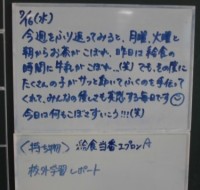 7/16(水)
今週をふり返ってみると、月曜、火曜と
朝からお茶がこぼれ、昨日は給食の
時間に牛乳がこぼれ…(笑)でも、その度に
たくさんの子がサッと動いてぞうきんを手伝って
くれて、みんなの優しさを実感する毎日です
今日は何もこぼさずいこう!!!(笑)
〈持ち物〉 給食当番エプロンA
校外学習レポート